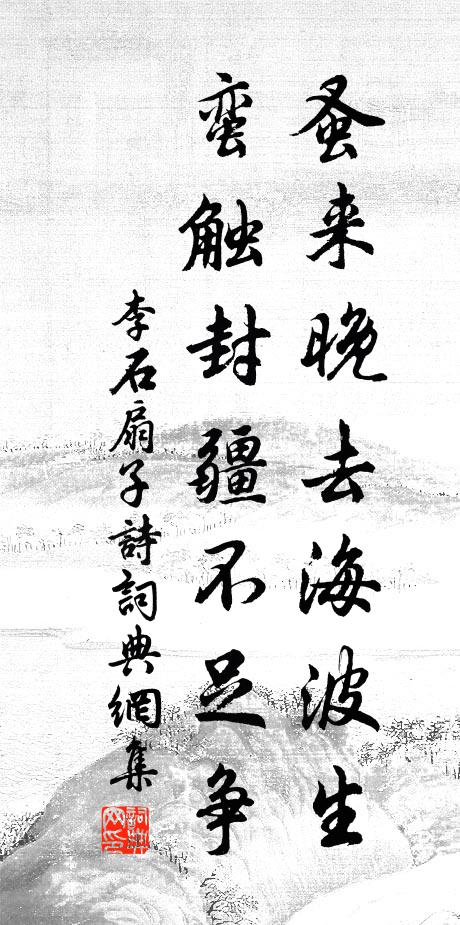 蚤来晚去海波生
蛮触封疆不足争
李石扇子詩詞典網集
詞典网印